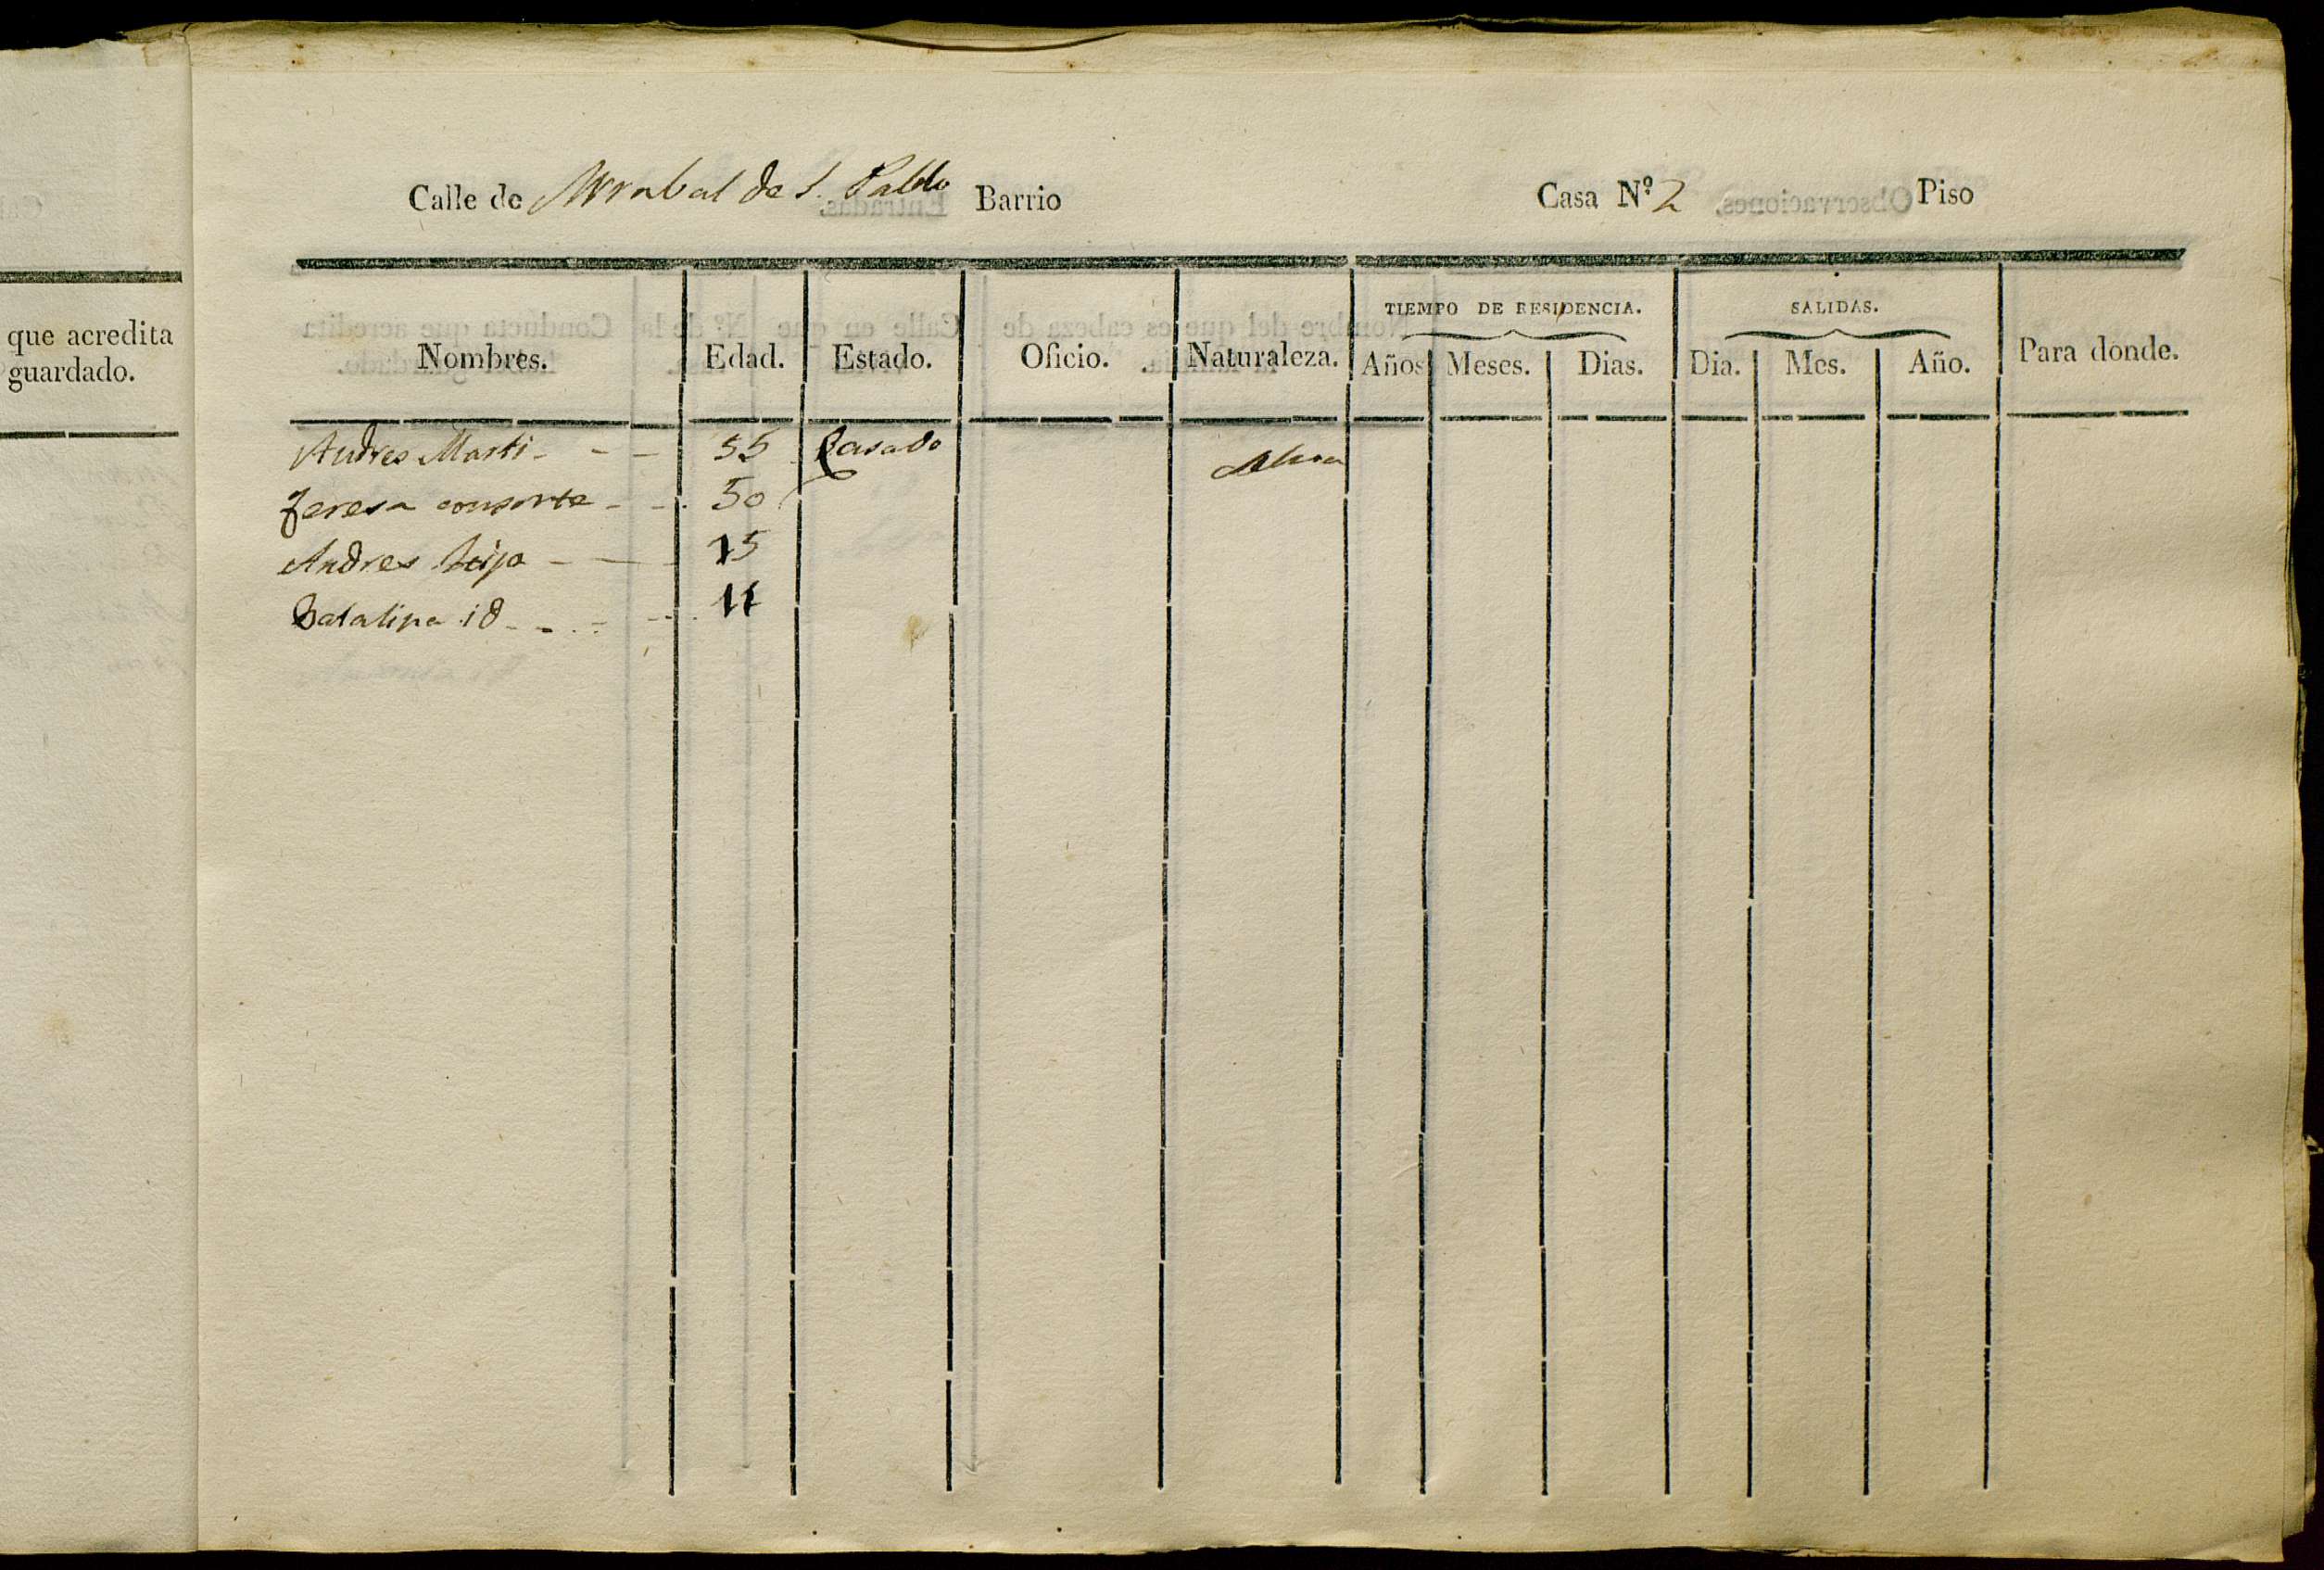 Calle de Arrabal de S. Pablo Barrio Casa N.º 2 Piso
que acredita
guardado.
TIEMPO DE RESIDENCIA. SALIDAS.
Nombres. Edad. Estado. Oficio. Naturaleza. Años Meses. Dias. Dia. Mes. Año. Para dónde.
Andres Marti - - - 55 Casado
Teresa consorte - - 50
Andres hijo - - - 15
Catalina id - - - - 11